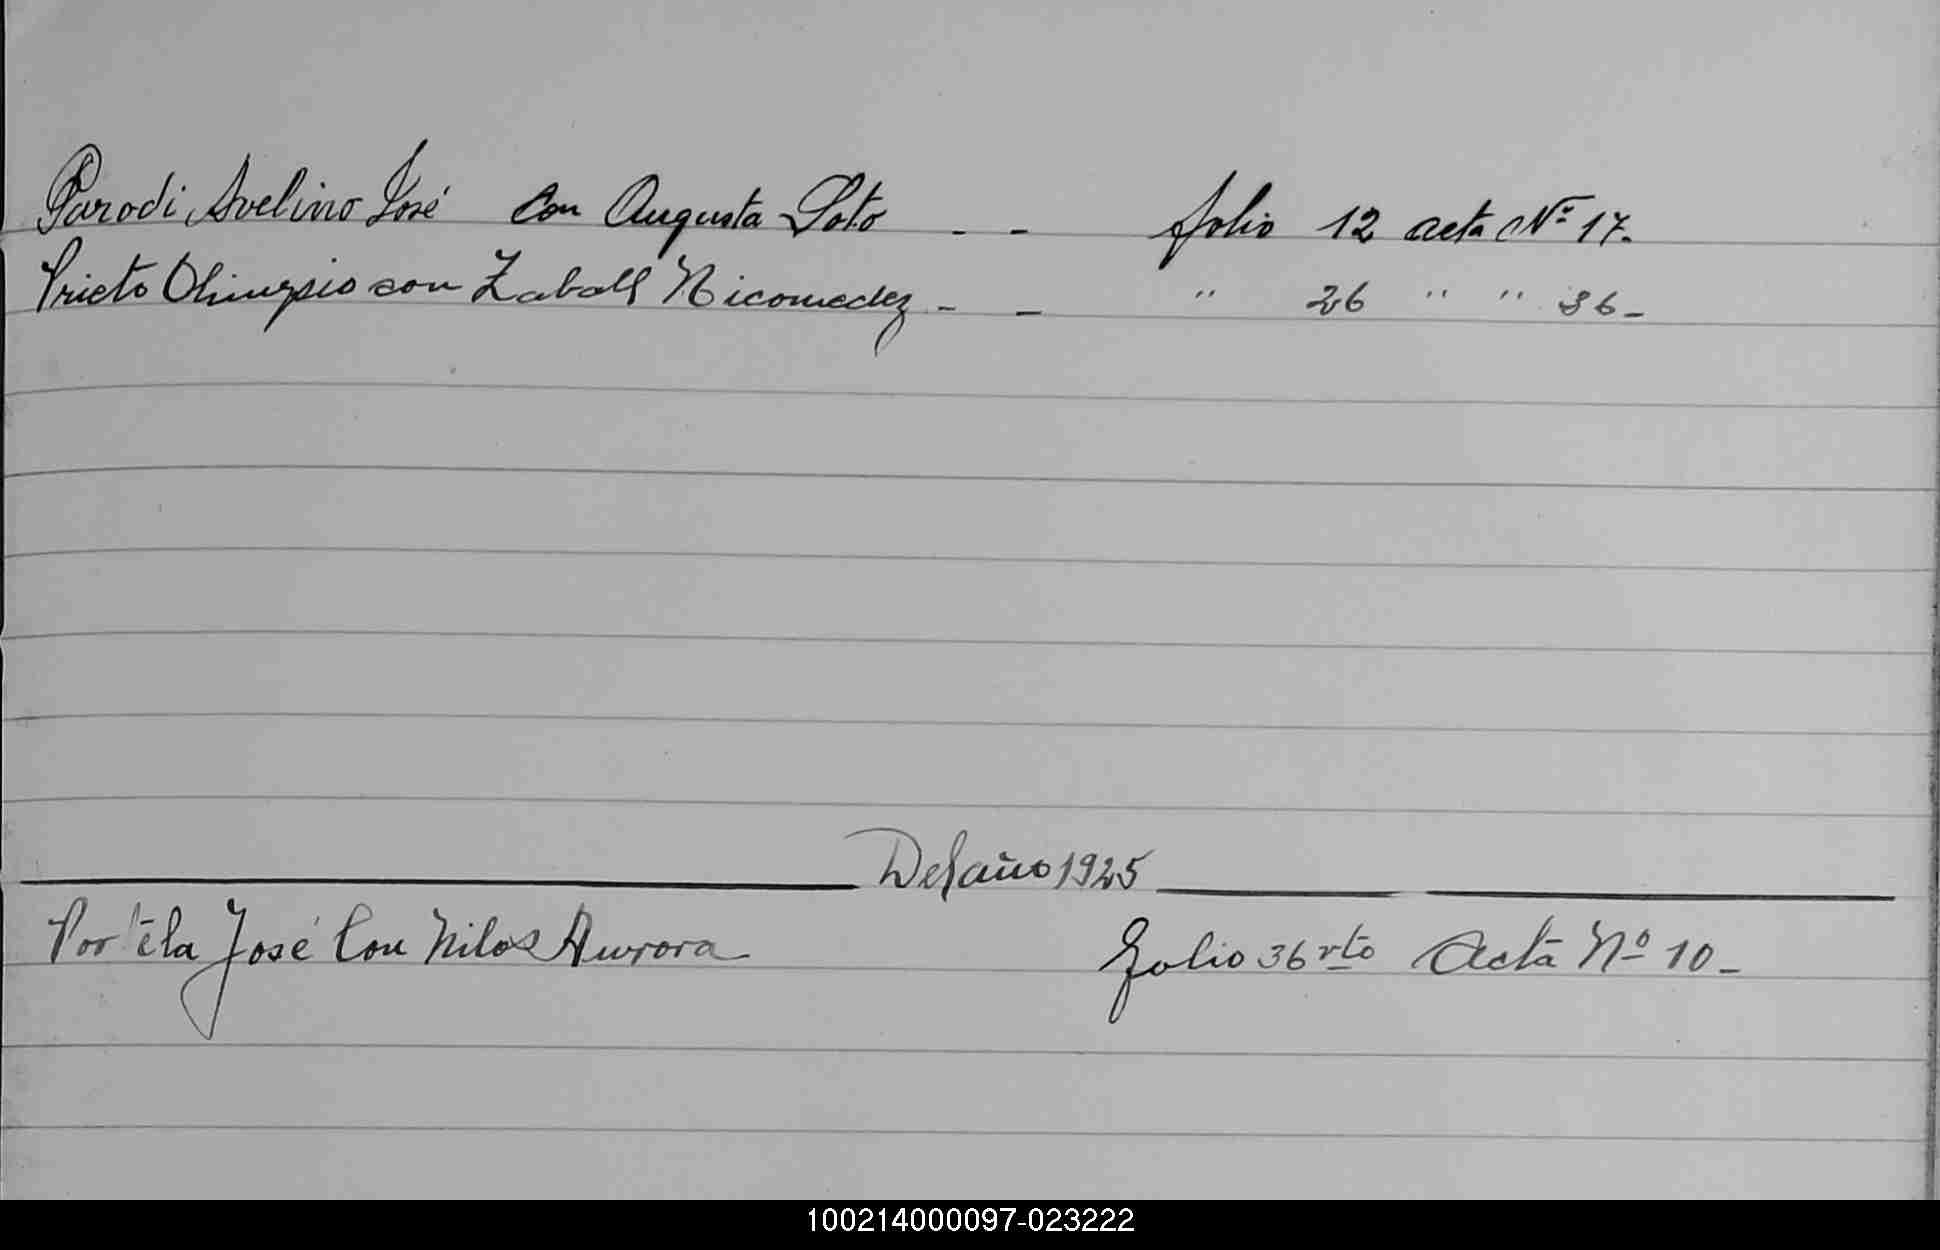 Parodi Avelino José con Augusta Soto - - folio 12 acta Nº 17.
Prieto Olimpio con Zaball Nicomedez - - " 26 " " 36 -
Del año 1925
Portela José Con Nilos Aurora Folio 36 vto Acta Nº 10 -
100214000097-023222